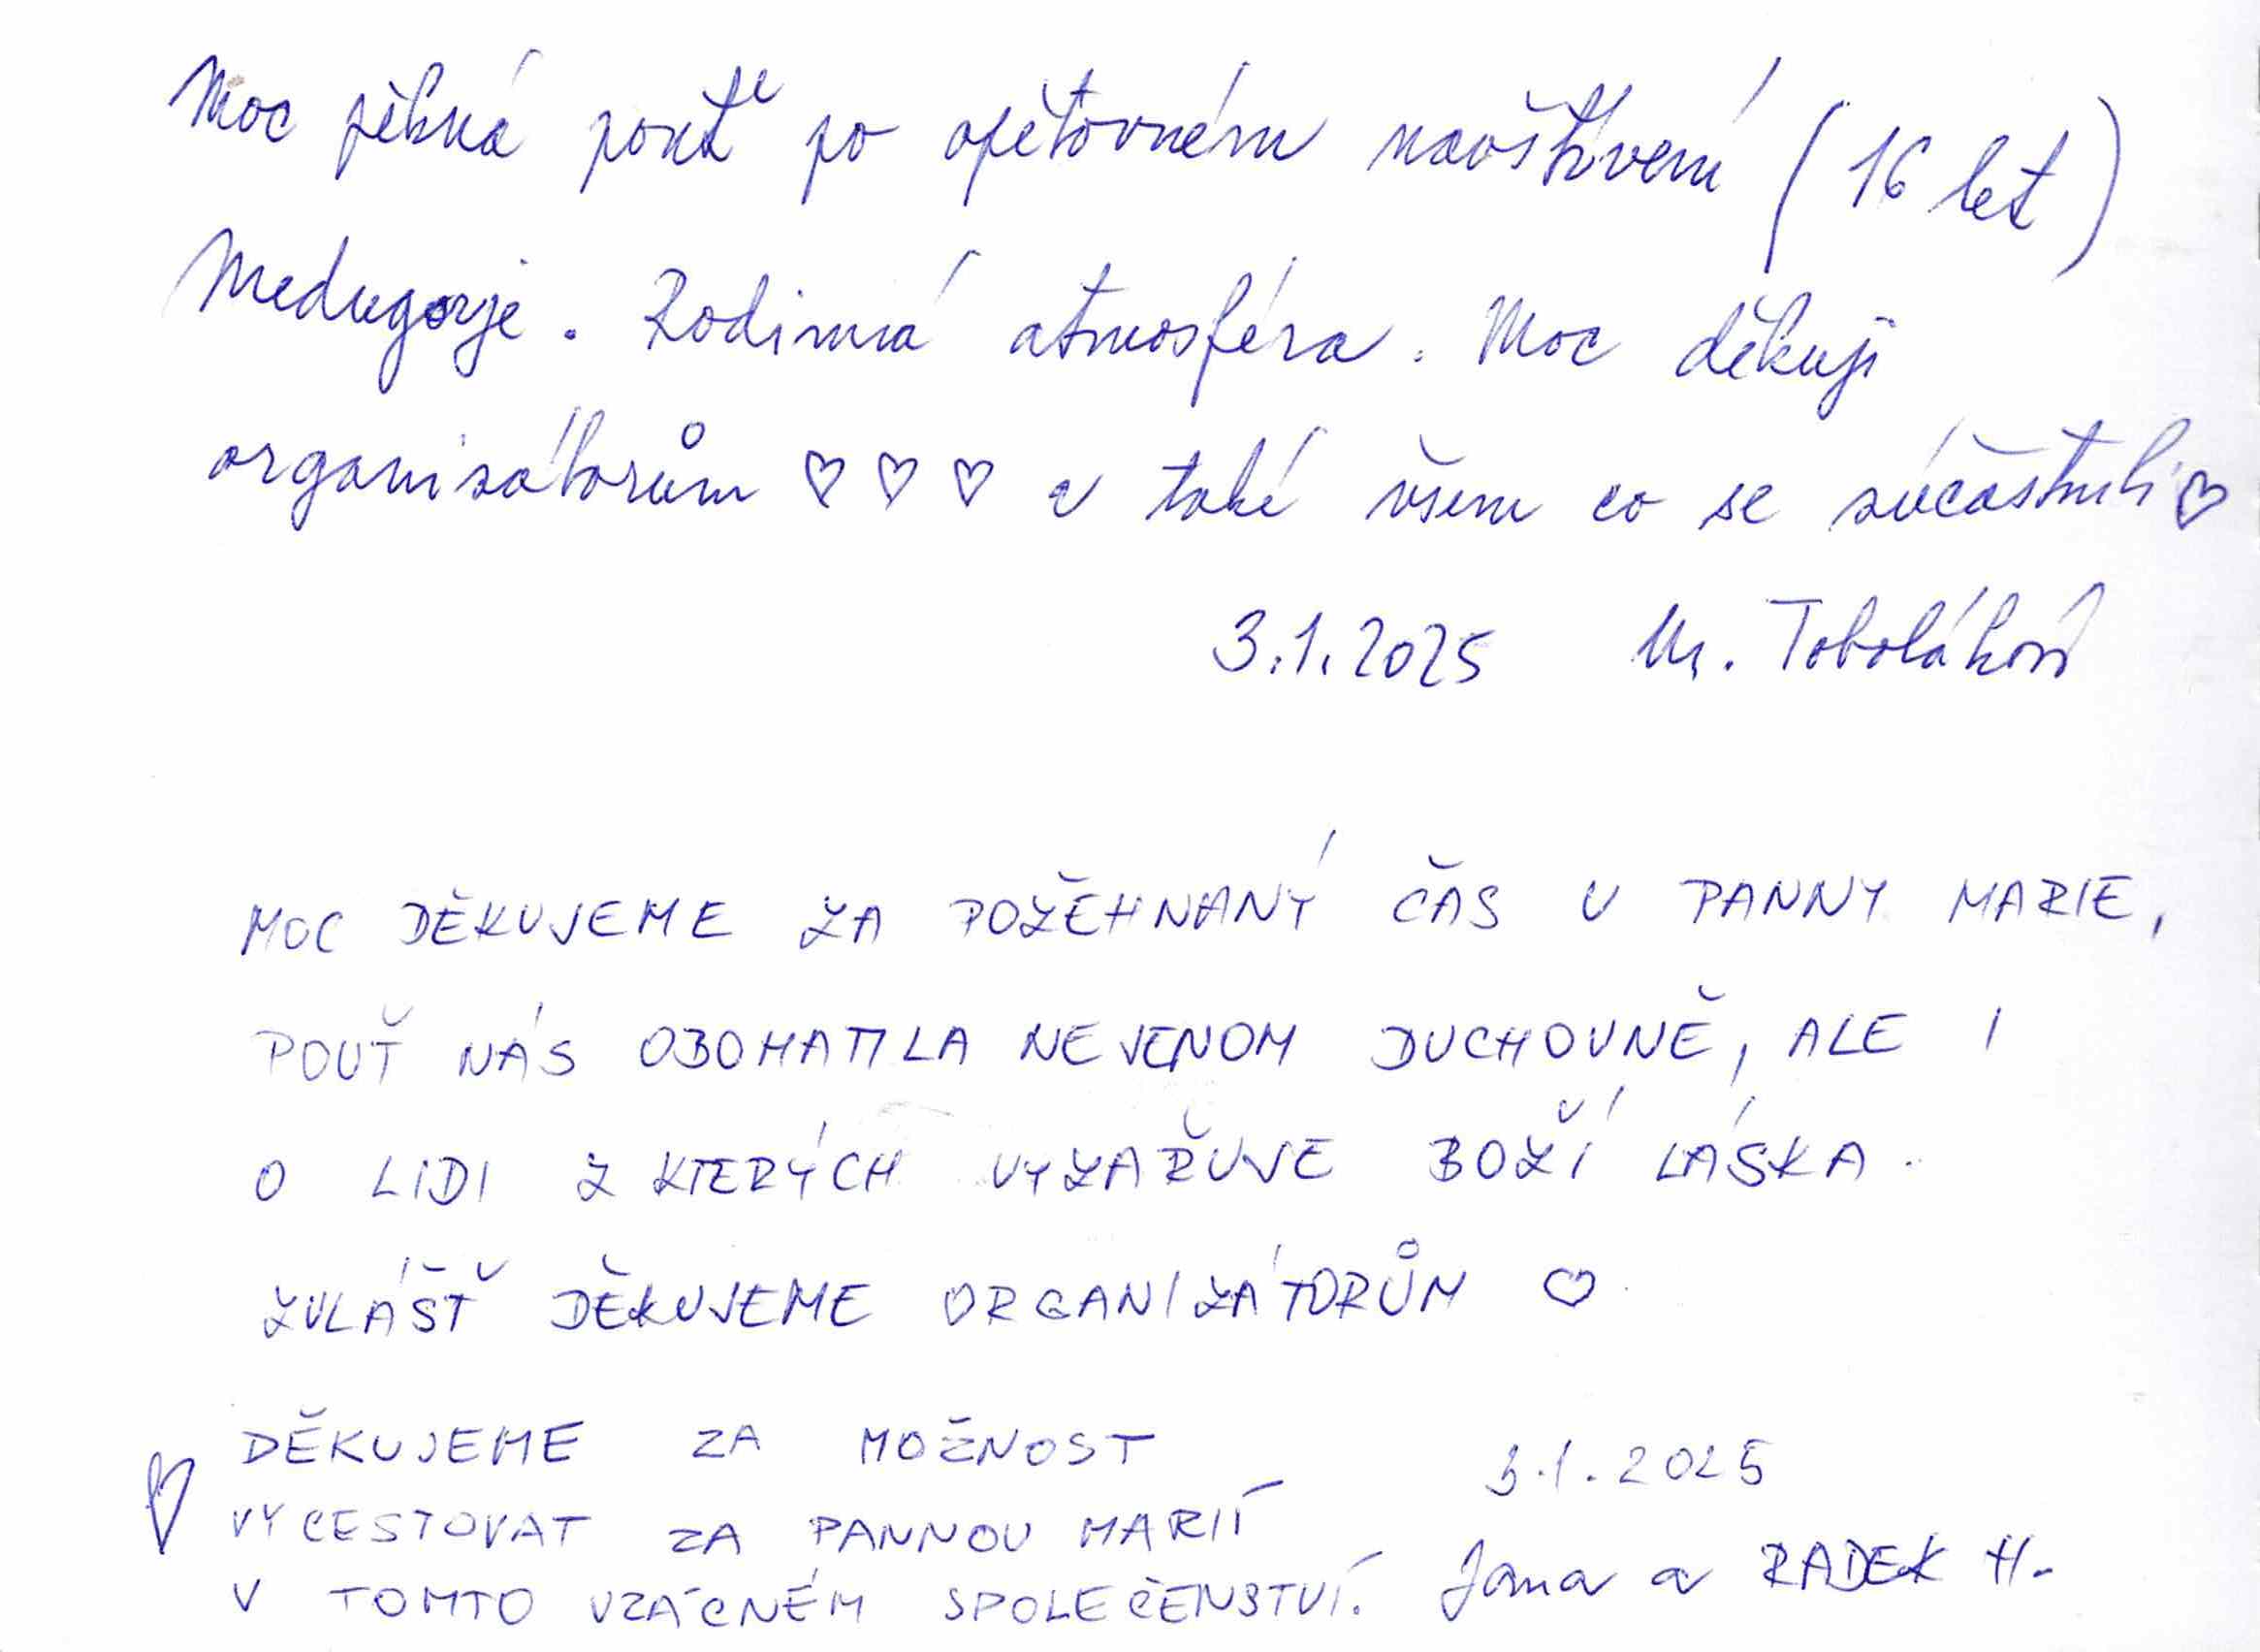 Moc pěkná pouť po opětovném navštívení (16 let)
Medugorje. Rodinná atmosféra. Moc děkuji
organisátorům ♡ ♡ ♡ a také všem co se súčastnili ♡
3.1.2025 M. Toboláková
MOC DĚKUJEME ZA POŽĚHNANÝ ČAS U PANNY MARIE,
POUŤ NÁS OBOHATILA NEJENOM DUCHOVNĚ, ALE I
O LIDI Z KTERÝCH VYZAŘUJE BOŽÍ LÁSKA.
ZVLÁŠŤ DĚKUJEME ORGANIZÁTORŮM ♡
DĚKUJEME ZA MOŽNOST
♡ VYCESTOVAT ZA PANNOU MARIÍ
V TOMTO VZÁCNÉM SPOLEČENSTVÍ.
3.1.2025
Jana a RADEK H.